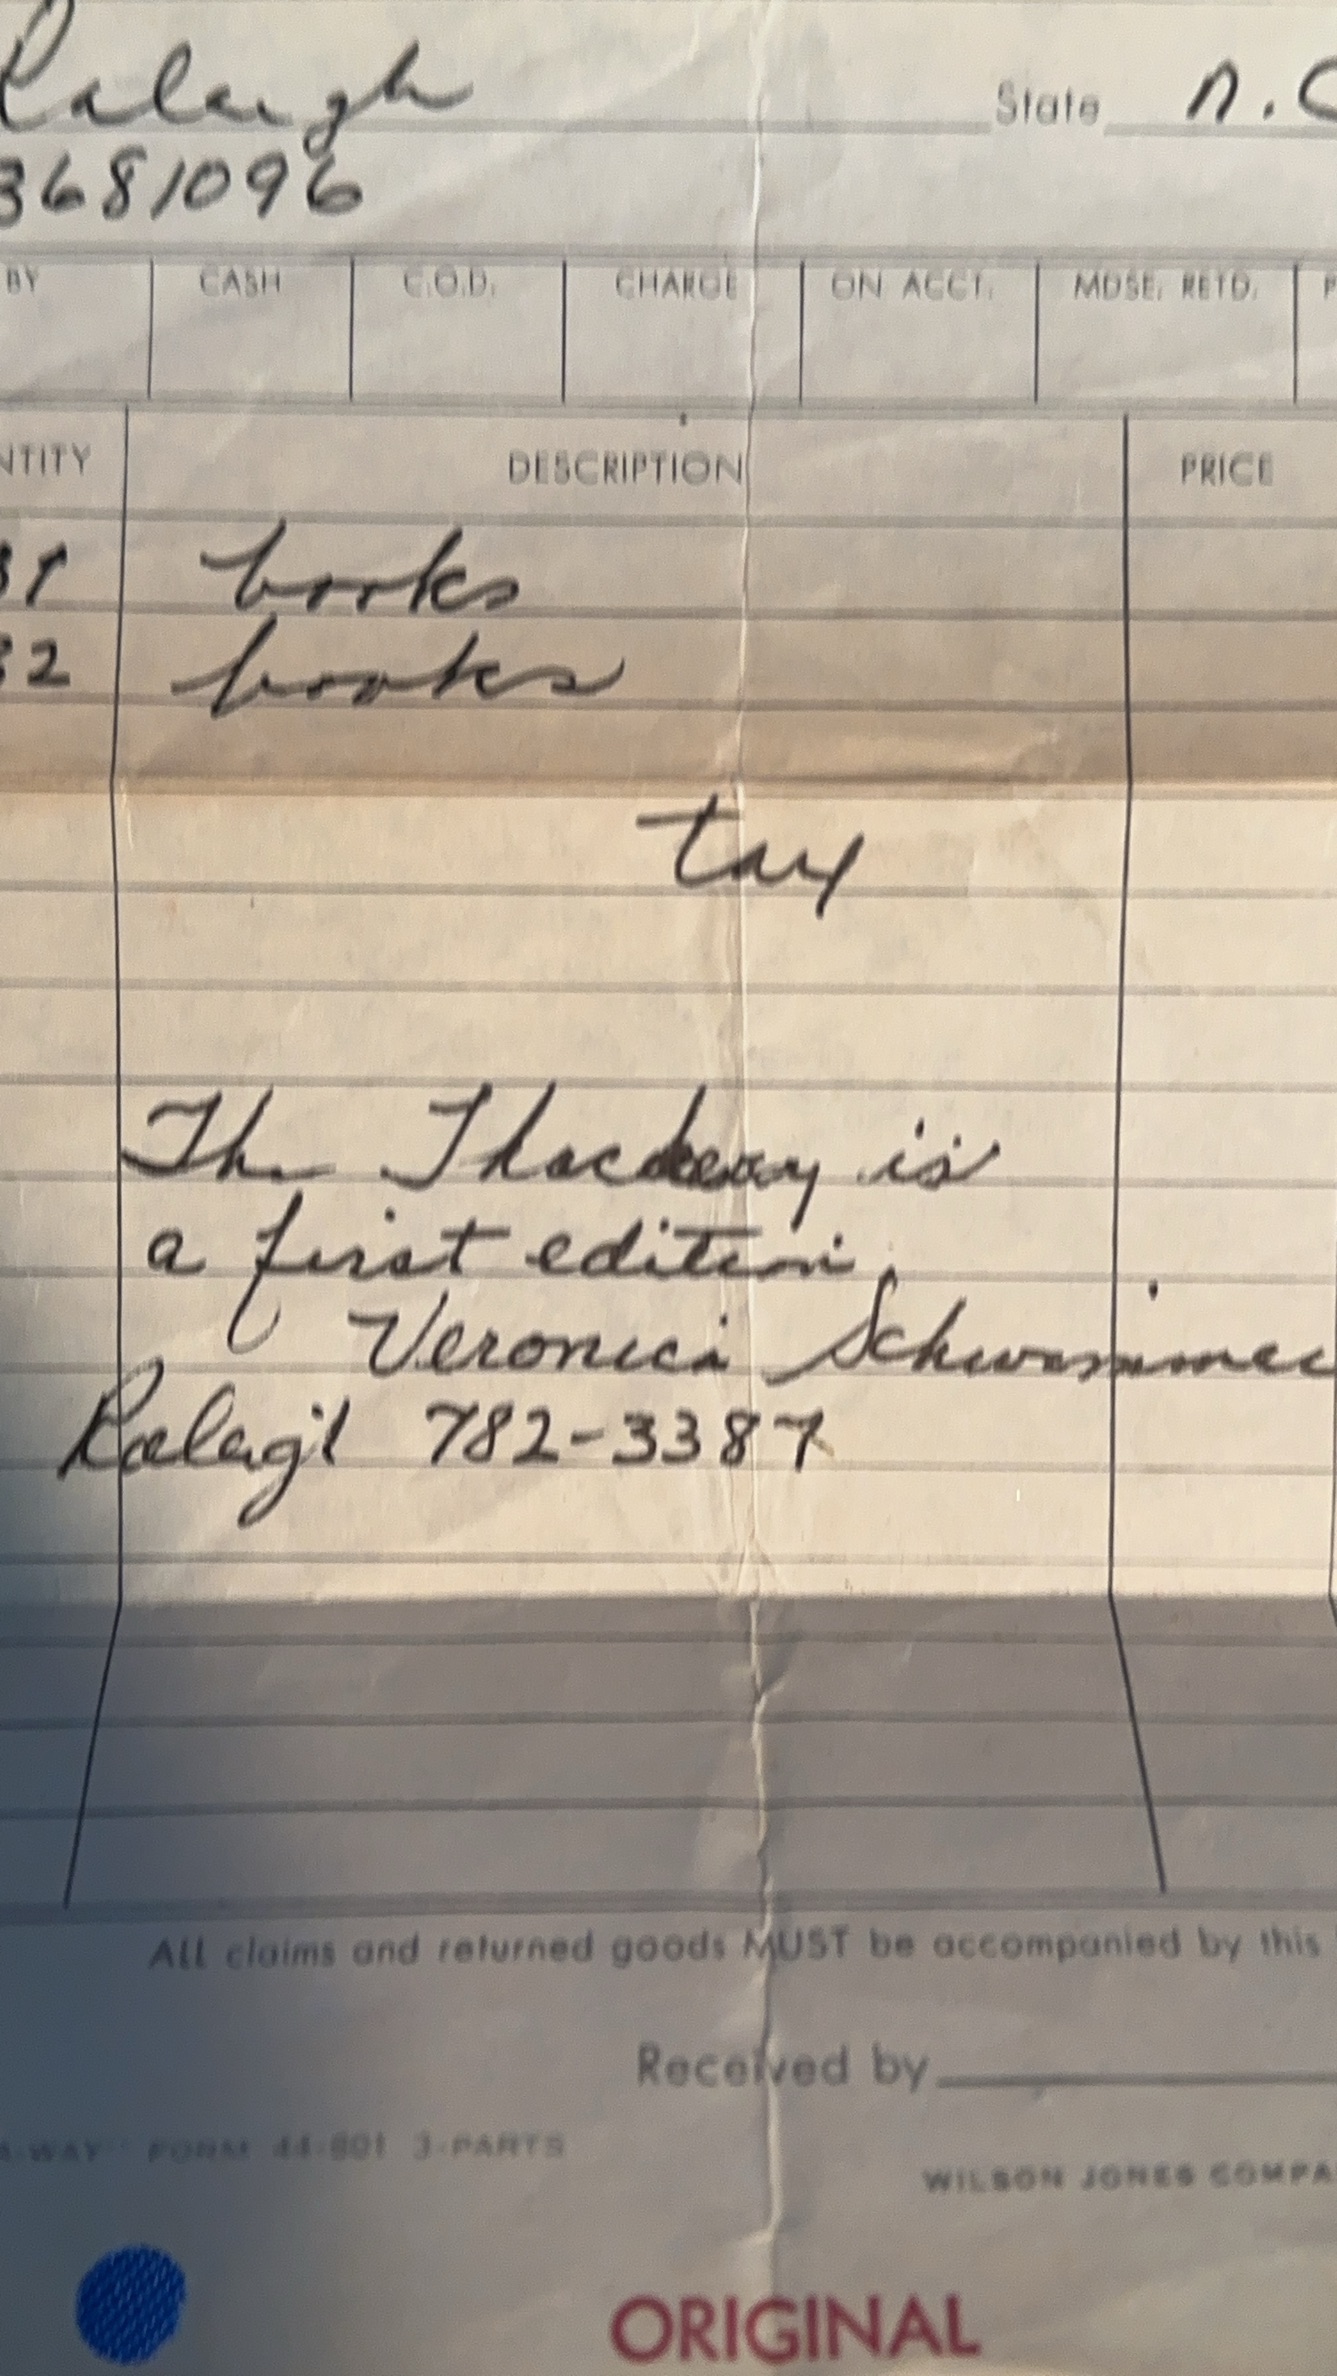 Raleigh State N.C
3681096
BY CASH C.O.D. CHARGE ON ACCT. MDSE. RETD. P
NTITY DESCRIPTION PRICE
books
32 books
tax
The Thackeray is
a first edition.
Veronica Schwimmer
Raleigh 782-3387
All claims and returned goods MUST be accompanied by this
Received by
A-WAY" FORM 44-801 3-PARTS
WILSON JONES COMPA
ORIGINAL